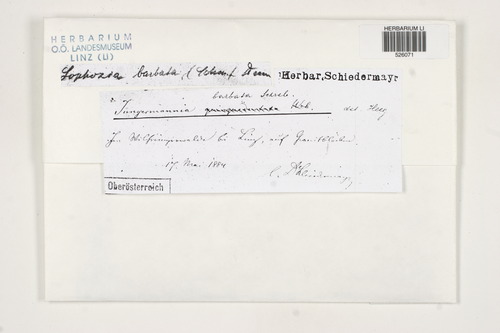 HERBARIUM
O.Ö. LANDESMUSEUM
LINZ (LI)
HERBARIUM LI
526071
Lophozia barbata (Schm Dum Herbar, Schiedermayr
barbata Schreb.
Jungermannia Hook. det. Heeg
Im bei Linz, auf
17. Mai 1884
Dr Schiedermayr
Oberösterreich